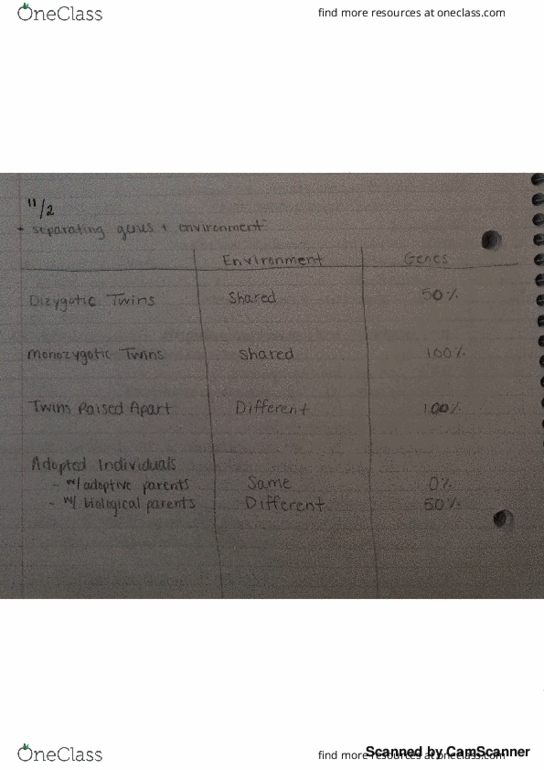 OneClass
find more resources at oneclass.com
11/2
+ separating genes + environment
Environment Genes
Dizygotic Twins Shared 50%
Monozygotic Twins Shared 100%
Twins Raised Apart Different 100%
Adopted Individuals
- w/ adoptive parents Same 0%
- w/ biological parents Different 50%
Scanned by CamScanner
OneClass
find more resources at oneclass.com